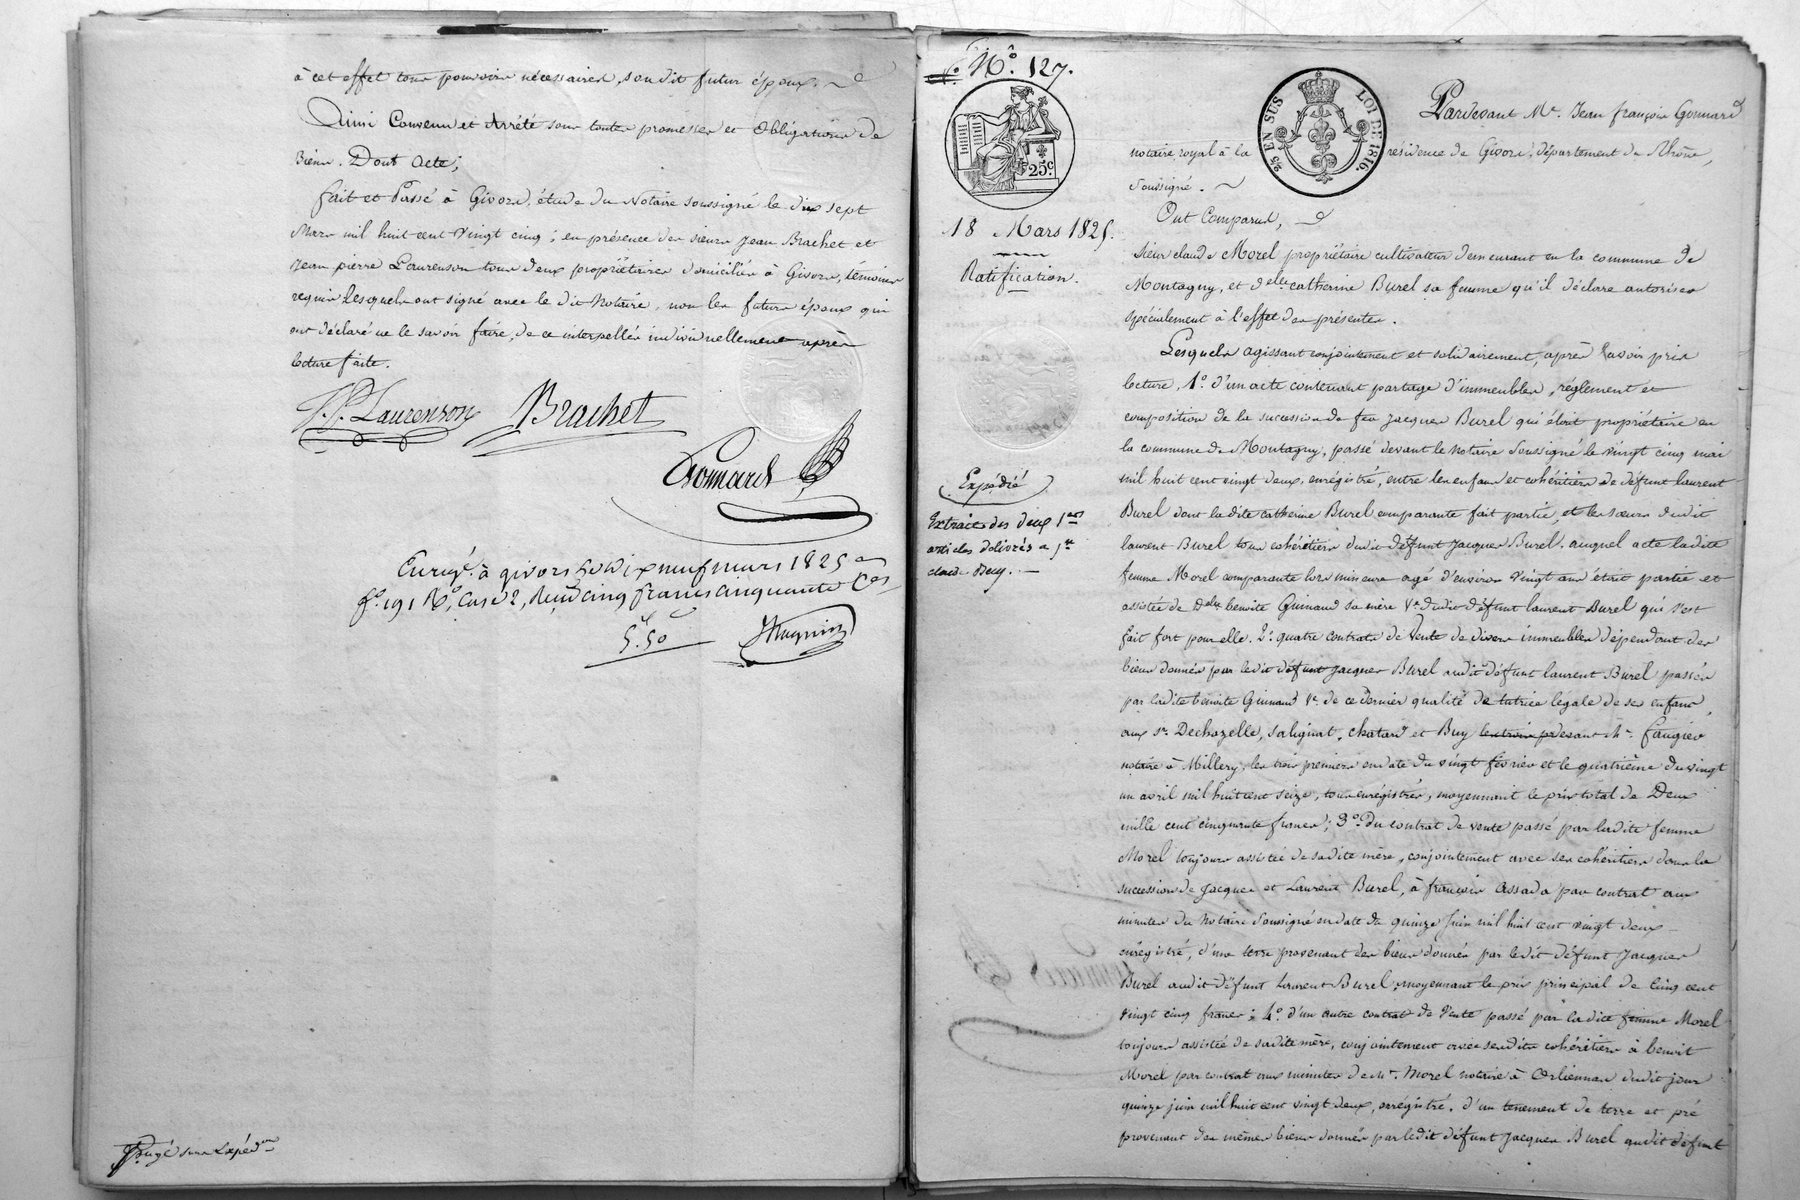 à cet effet tous pouvoirs nécessaires, son dit futur époux.
Ainsi Convenu et Arrêté sous toutes promesses et Obligations de
Biens. Dont Acte;
fait et Passé à Givors, étude du Notaire soussigné le dix sept
Mars mil huit cent vingt cinq; en présence des sieurs Jean Brachet et
Jean pierre Laurenson tous deux propriétaires domiciliés à Givors, témoins
requis lesquels ont signé avec le dit Notaire, non les futurs époux qui
ont déclaré ne le savoir faire, de ce interpellés individuellement après
lecture faite.
J.P. Laurenson Brachet
Gonnard
Enregé. à givors le dix neuf mars 1825
fo. 191 Ro. Case 2, Reçu cinq francs cinquante Ces
5f. 50
Jugé sur Expédon
No. 127.
25c.
18 Mars 1825.
Ratification.
Expédié
Extraits des deux 1ers
articles délivrés a Sr
claude Buy.
25 EN SUS LOI DE 1816.
Pardevant Me. Jean françois Gonnard
notaire royal à la résidence de Givors, département du Rhône,
Soussigné.
Ont Comparus,
Sieur claude Morel propriétaire cultivateur demeurant en la commune de
Montagny, et delle catherine Burel sa femme qu'il déclare autoriser
spécialement à l'effet des présentes.
Lesquels agissant conjointement et solidairement, après avoir pris
lecture, 1o. d'un acte contenant partage d'immeubles, réglement et
composition de la succession de feu Jacques Burel qui étoit propriétaire en
la commune de Montagny, passé devant le notaire Soussigné le vingt cinq mai
mil huit cent vingt deux, enrégistré, entre les enfans et cohéritiers de défunt laurent
Burel dont la dite catherine Burel comparante fait partie, et les sœurs dudit
laurent Burel tous cohéritiers dudit défunt Jacques Burel. auquel acte ladite
femme Morel comparante lors mineure agé d'environ vingt ans étoit partie et
assistée de Delle benoite Guinand sa mère Ve. dudit défunt laurent Burel qui s'est
fait fort pour elle. 2o. quatre contrats de Vente de divers immeubles dépendant des
biens donnés par ledit défunt Jacques Burel audit défunt laurent Burel passés
par ladite benoite Guinand Ve. de ce dernier qualité de tutrice légale de ses enfans,
aux srs. Dechazelle, salignat, chatard et Buy les trois pdevant Me. faugier
notaire à Millery, les trois premiers en date du vingt février et le quatrième du vingt
un avril mil huit cent seize, tous enrégistrés, moyennant le prix total de Deux
mille cent cinquante francs; 3o. Du contrat de vente passé par ladite femme
Morel toujours assistée de sadite mère, conjointement avec ses cohéritiers dans la
succession de Jacques et Laurent Burel, à francois Assada par contrat aux
minutes du Notaire Soussigné en date du quinze juin mil huit cent vingt deux
enrégistré, d'une terre provenant des biens donnés par ledit défunt Jacques
Burel audit défunt Laurent Burel, moyennant le prix principal de Cinq cent
vingt cinq francs; 4o. d'un autre contrat de Vente passé par la dite femme Morel
toujours assistée de sadite mère, conjointement avec sesdits cohéritiers à benoit
Morel par contrat aux minutes de Me. Morel notaire à Orliennas dudit jour
quinze juin mil huit cent vingt deux, enrégistré. d'un tenement de terre et pré
provenant des mêmes biens donnés par ledit défunt Jacques Burel audit défunt